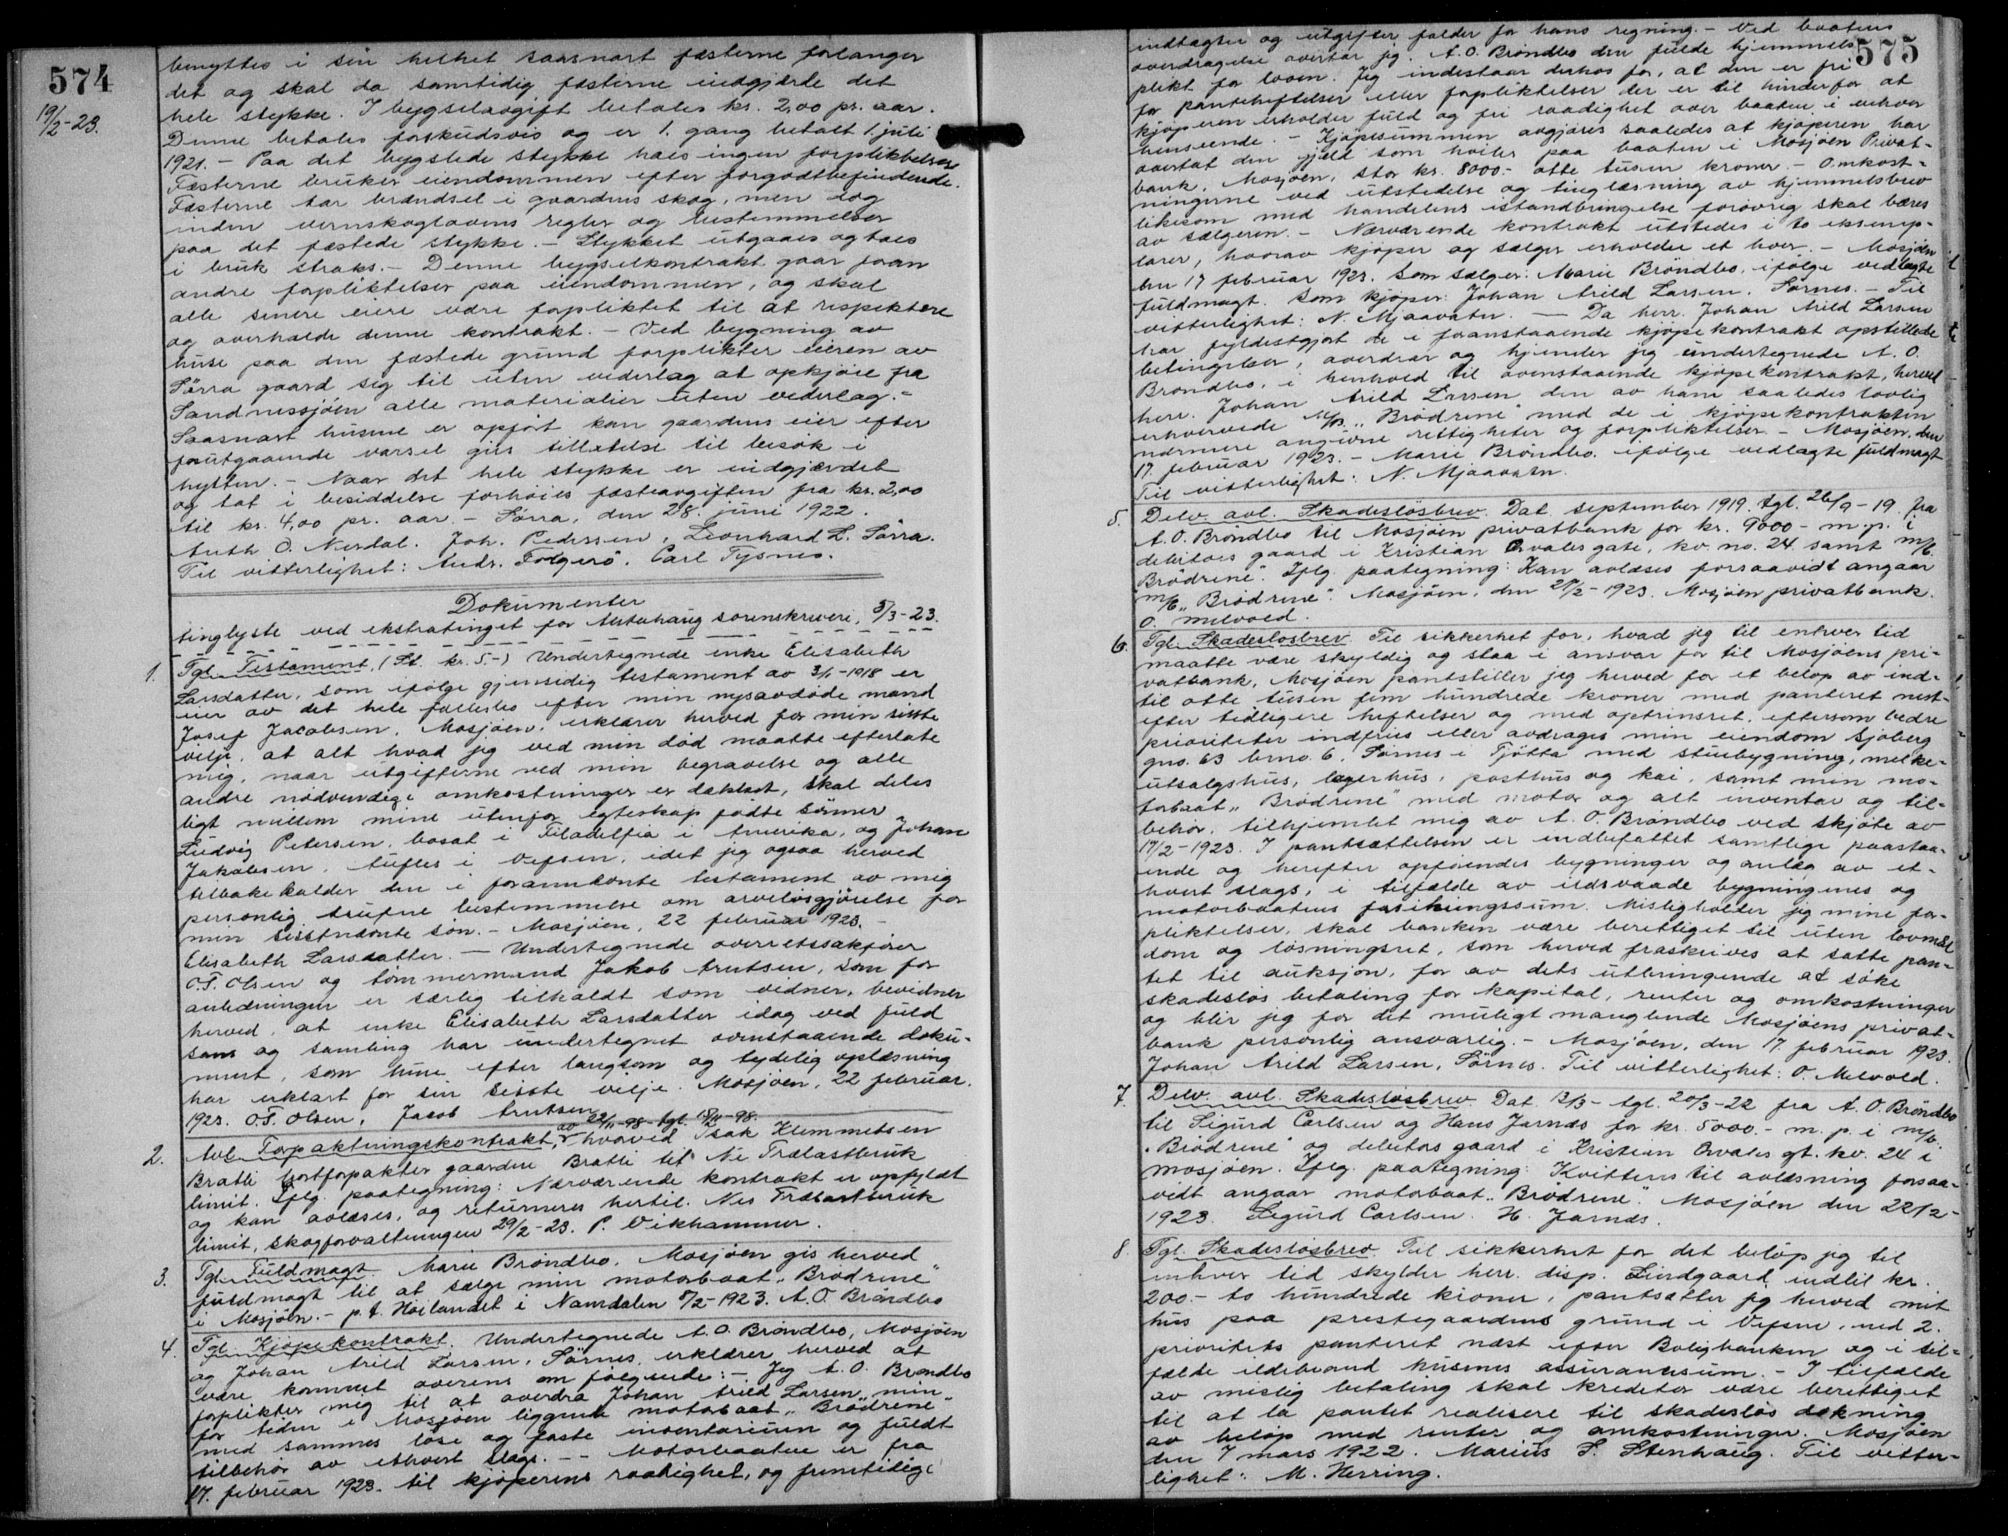 574
19/2-23.
benyttes i sin helhet saasnart fæsterne forlanger
det og skal da samtidig fæsterne indgjærde det
hele stykke. I bygselavgift betales kr. 2,00 pr. aar.
Denne betales forskudsvis og er 1. gang betalt 1. juli
1921. - Paa det bygslede stykke haes ingen forpliktelser.
Fæsterne bruker eiendommen efter forgodtbefindende.
Fæsterne tar brændsel i gaardens skog, men dog
inden vernskoglovens regler og bestemmelser
paa det fæstede stykke. - Stykket utgaaes og taes
i bruk straks. - Denne bygselkontrakt gaar foran
andre forpliktelser paa eiendommen, og skal
alle senere eiere være forpliktet til at respektere
og overholde denne kontrakt. - Ved bygning av
huse paa den fæstede grund forplikter eieren av
Sörra gaard sig til uten vederlag at opkjöre fra
Sandnessjöen alle materialier uten vederlag. -
Saasnart husene er opfört kan gaardens eier efter
forutgaaende varsel gis tillatelse til besök i
hytten. - Naar det hele stykke er indgjærdet
og tat i besiddelse forhöies fæsteavgiften fra kr. 2,00
til kr. 4,00 pr. aar. - Sörra, den 28 juni 1922.
Anth O. Nerdal. Joh. Pedersen, Leonhard L. Sörra.
Til vitterlighet: Andr. Folgerö. Carl Tysnes.
Dokumenter
tinglyste ved ekstratinget for Alstahaug sorenskriveri, 5/3-23.
1. Tgl. Testament. (St. kr. 5.-) Undertegnede enke Elisabeth
Larsdatter, som ifölge gjensidig testament av 3/1-1918 er
eier av det hele fællesbo efter min nysavdöde mand
Josef Jacobsen, Mosjöen, erklærer herved for min sidste
vilje, at alt hvad jeg ved min död maatte efterlate
mig, naar utgifterne ved min begravelse og alle
andre nödvendige omkostninger er dækket, skal deles
ligt mellem mine utenfor egteskap födte sönner
Ludvig Petersen, bosat i Filadelfia i Amerika, og Johan
Jakobsen, Tuftes i Vefsen, idet jeg ogsaa herved
tilbakekalder den i forannævnte testament av mig
personlig trufne bestemmelse om arvelösgjörelse for
min sistnævnte sön. - Mosjöen, 22 februar 1923. -
Elisabeth Larsdatter. - Undertegnede overretssakförer
O. T. Olsen og tömmermand Jakob Arntsen, som for
anledningen er særlig tilkaldt som vidner, bevidner
herved, at enke Elisabeth Larsdatter idag ved fuld
sans og samling har undertegnet ovenstaaende doku-
ment, som hun efter langsom og tydelig oplæsning
har erklært for sin sidste vilje. Mosjöen, 22 februar.
1923. O. T. Olsen, Jacob Arntsen
av 22/11-98 tgl. 15/12-98.
2. Avl. Forpaktningskontrakt, hvorved Isak Klemmetsen
Bratli bortforpakter gaarden Bratli til Ne Trælastbruk
limit. Iflg. paategning: Nærværende kontrakt er opfyldt
og kan avlæses, og returneres hertil. Nes Trælastbruk
limit, skogforvaltningen 29/2-23. P. Vikhammer.
3. Tgl. Fuldmagt. Marie Bröndbo, Mosjöen gis herved
fuldmagt til at sælge min motorbaat „Brödrene"
i Mosjöen. - p. t. Höilandet i Namdalen 8/2-1923. A. O. Bröndbo
4. Tgl. Kjöpekontrakt. Undertegnede A. O. Bröndbo, Mosjöen
og Johan Arild Larsen, Sörnes, erklærer herved at
være kommet overens om fölgende: - Jeg A. O. Bröndbo
forplikter mig til at overdra Johan Arild Larsen min
for tiden i Mosjöen liggende motorbaat „Brödrene"
med sammes löse og faste inventarium og fuldt
tilbehör av ethvert slags. - - Motorbaaten er fra
17. februar 1923. til kjöperens raadighet, og fremtidige
575
indtægter og utgifter falder for hans regning. - Ved baatens
overdragelse overtar jeg. A. O. Bröndbo den fulde hjemmels-
plikt for loven. Jeg indestaar derhos for, at den er fri
for pantehæftelser eller forpliktelser der er til hinder for at
kjöperen erholder fuld og fri raadighet over baaten i enhver
henseende. - Kjöpesummen avgjöres saaledes at kjöperen har
overtat den gjæld som hviler paa baaten i Mosjöen Privat-
bank, Mosjöen, stor kr. 8000.- otte tusen kroner. - Omkost-
ningerne ved utstedelse og tinglæsning av hjemmelsbrev
likesom med handelens istandbringelse forövrig skal bæres
av sælgeren. - Nærværende kontrakt utstedes i to eksemp-
larer, hvorav kjöper og sælger erholder et hver. - Mosjöen
den 17 februar 1923. Som sælger: Marie Bröndbo, ifölge vedlagte
fuldmagt. Som kjöper: Johan Arild Larsen, Sörnes. - Til
vitterlighet: N. Mjaavatn. - Da herr. Johan Arild Larsen
har fyldestgjort de i foranstaaende kjöpekontrakt opstillede
betingelser, overdrar og hjemler jeg undertegnede A. O.
Bröndbo, i henhold til ovenstaaende kjöpekontrakt, herved
herr. Johan Arild Larsen den av ham saaledes lovlig
erhvervede M/B. „Brödrene" med de i kjöpekontrakten
nærmere angivne rettigheter og forpliktelser. - Mosjöen, den
17. februar 1923. - Marie Bröndbo. ifölge vedlagte fuldmagt
Til vitterlighet: N. Mjaavatn.
5. Delv. avl. Skadeslösbrev. Dat. september 1919, tgl. 26/9-19. fra
A. O. Bröndbo til Mosjöen privatbank for kr. 9000.- m. p. i
debitors gaard i Kristian Qvales gate, kv. no. 24 samt m/b.
Brödrene". Iflg. paategning: Kan avlæses forsaavidt angaar
m/b „Brödrene". Mosjöen, den 21/2-1923. Mosjöen privatbank.
O. Melvold.
6. Tgl. Skadeslösbrev. Til sikkerhet for, hvad jeg til enhver tid
maatte være skyldig og staa i ansvar for til Mosjöens pri-
vatbank, Mosjöen pantstiller jeg herved for et belöp av ind-
til otte tusen fem hundrede kroner med panteret næst-
efter tidligere heftelser og med optrinsret, eftersom bedre
prioriteter indfries eller avdrages min eiendom Sjöberg
gno. 63 brno. 6. Sörnes i Tjötta med stuebygning, melke-
utsalgshus, lagerhus, posthus og kai, samt min mo-
torbaat „Brödrene" med motor og alt inventar og til-
behör, tilhjemlet mig av A. O. Bröndbo ved skjöte av
17/2-1923. I pantsættelsen er indbefattet samtlige paastaa-
ende og herefter opförendes bygninger og anlæg av et-
hvert slags, i tilfælde av ildsvaade bygningenes og
motorbaatens forsikringssum. Misligholder jeg mine for-
pliktelser, skal banken være berettiget til uten lovmaal
dom og lösningsret, som herved fraskrives at sætte pan-
tet til auksjon, for av dets utbringende at söke
skadeslös betaling for kapital, renter og omkostninger
og blir jeg for det muligt manglende Mosjöens privat-
bank personlig ansvarlig. - Mosjöen, den 17. februar 1923.
Johan Arild Larsen, Sörnes. Til vitterlighet: O. Melvold.
7. Delv. avl. Skadeslösbrev. Dat. 13/3- tgl. 20/3-22 fra A. O. Bröndbo
til Sigurd Carlsen og Hans Jarnæs for kr. 5000.- m. p. i m/b.
„Brödrene" og debitors gaard i Kristian Qvales gt. kv. 24 i
Mosjöen. Iflg. paategning: Kvitteres til avlæsning forsaa-
vidt angaar motorbaat „Brödrene". Mosjöen den 22/2-
1923. Sigurd Carlsen. H. Jarnæs.
8. Tgl. Skadeslösbrev. Til sikkerhet for det belöp jeg til
enhver tid skylder herr. disp. Lindgaard, indtil kr.
200.- to hundrede kroner, pantsætter jeg herved mit
hus paa prestegaardens grund i Vefsen, med 2.
prioritets panteret næst efter Boligbanken og i til-
fælde ildebrand husenes assurancesum. - I tilfælde
av mislig betaling skal kreditor være berettiget
til at la pantet realisere til skadeslös dekning
av belöp med renter og omkostninger. Mosjöen
den 7 mars 1922. Marius S. Stenhaug. Til vitter-
lighet: M. Herring.